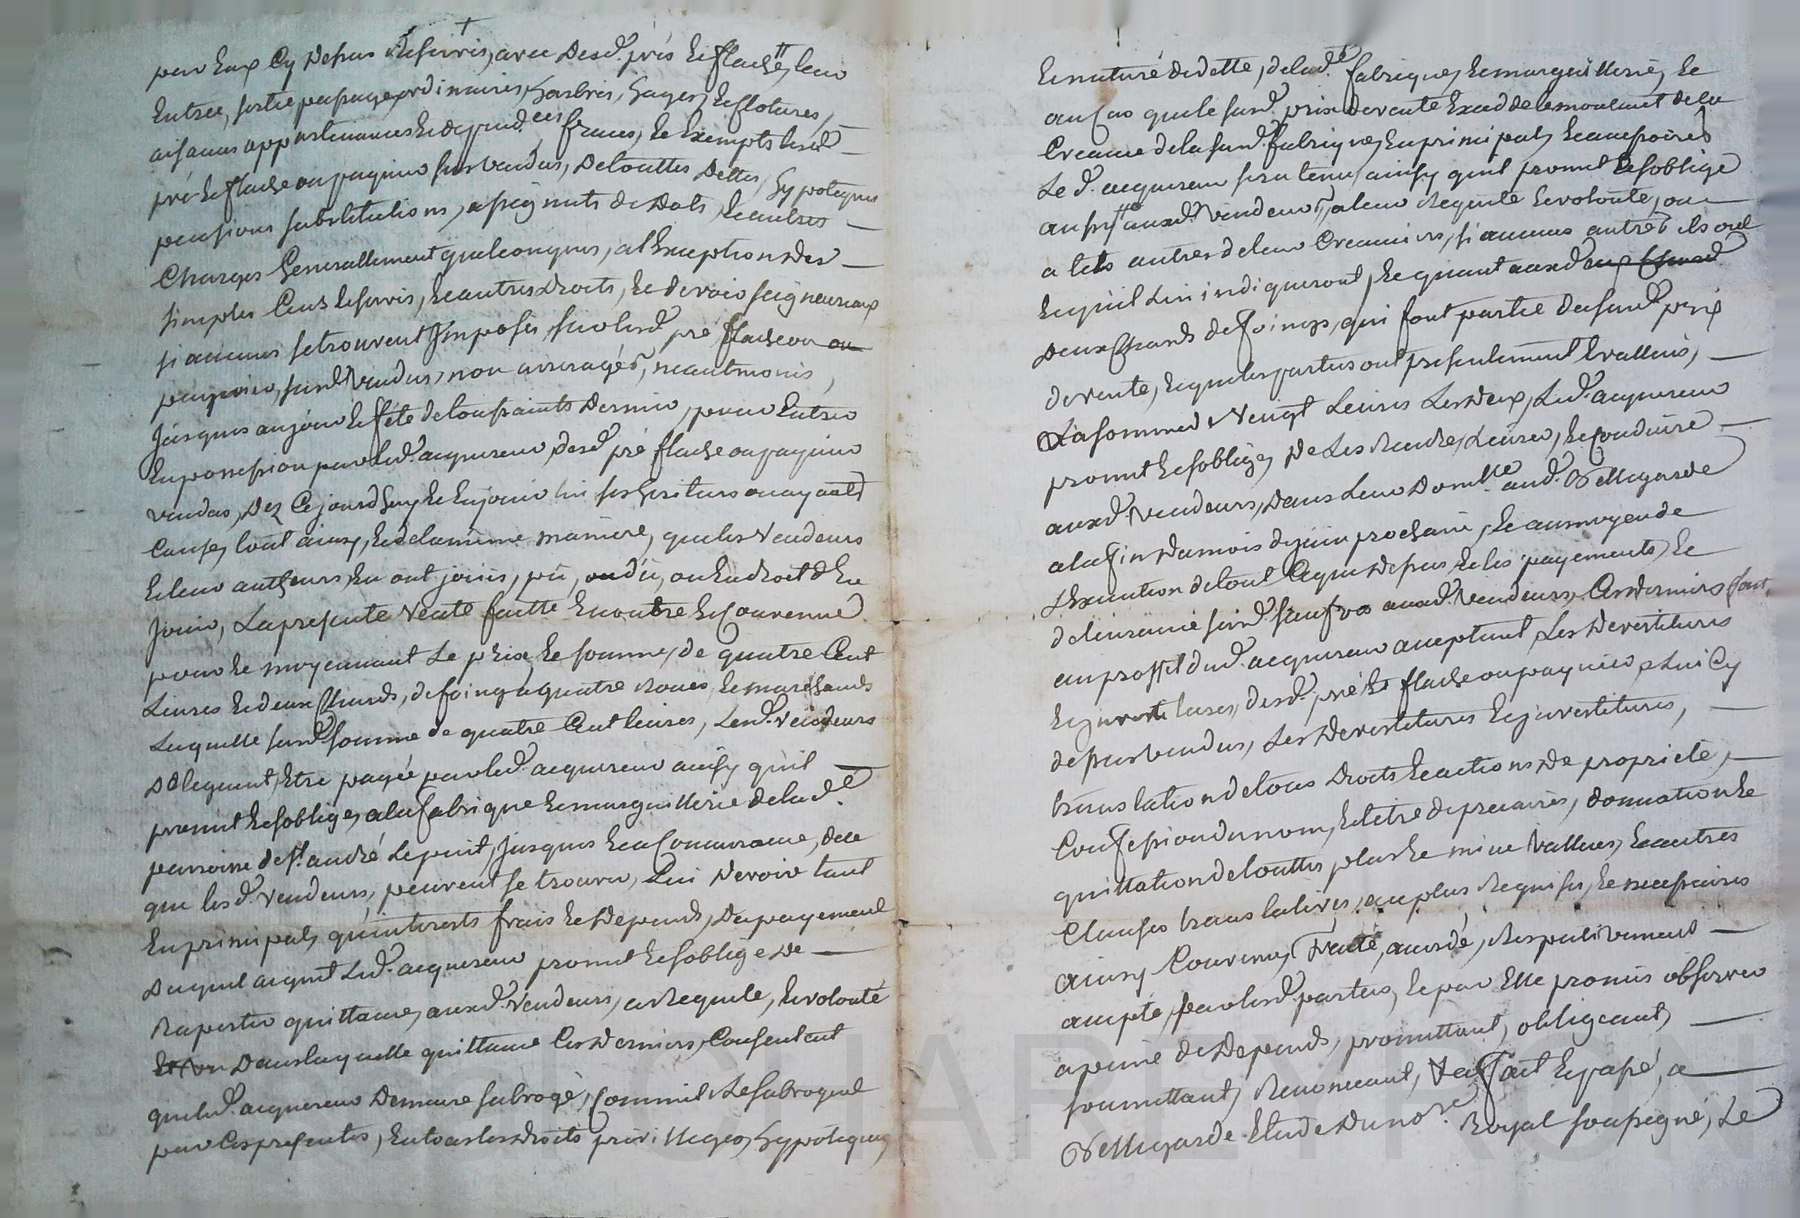 par Eux Cy depus Reservis, avec desd. prés Et flache, leur
Entrée, sortie passage ordinaires, harbres, hayes, Et clotures,
aisances appartenances Et depend.ces francs, Et Exempts lesd.
pré Et flache ou paquier sus vendus, de touttes dettes, hypoteques
pensions substitutions, assignats de dots, Et autres
Charges Generallement quelconques, a l'Exception des
simples Cens Et servis, Et autres droits, Et devoirs seigneuriaux
si aucuns se trouvent Imposés, sur lesd. pré flache ou ou
paquier, susd. vendus, non arreragés, neantmoins,
Jusques au jour Et féte de toussaints dernier, pour Entrer
En possession par led. acquereur, desd. pré flache ou paquier
vendus, dez Ce jourd'huy Et En jouir lui ses heritiers ou ayants
Cause, tout ainsy, Et de la même maniere, que les vendeurs
Et leur autheurs, En ont jouis, pû, ou dû, ou En droit d'En
Jouir, La presente vente faitte En outre Et Convenue
pour Et moyennant Le prix, Et somme, de quatre Cent
Livres Et deux Chards, de foing a quatre roues, Et marchands
Laquelle susd. somme de quatre Cent livres, Lesd. vendeurs
deleguent, Etre payée par led. acquereur ainsy qu'il
promet Et s'oblige, a la fabrique Et marguillerie de lad.e
paroisse de St. andré Le puit, Jusques Et a Concurrance, de ce
que lesd. vendeurs, peuvent se trouver, Lui devoir tant
En principal, qu'interests frais Et depends, du payement
duquel acquit Led. acquereur promet Et s'oblige de
Raporter quittance, auxd. vendeurs, a Requete, Et volonté
dans laquelle quittance Ces derniers, Consentent
que led. acquereur demeure subrogé, Comme ils Le subrogent
par Ces presentes, En tous les droits privilleges, hypoteques
Et nature de dette, de lad.e fabrique, Et marguillerie, Et
au Cas que le susd. prix de vente Excedde le montant de la
Creance de la susd. fabrique, En principal, Et accessoires
Le d. acquereur sera tenu, ainsy qu'il promet Et s'oblige
auxd. vendeurs, a leur Requete Et volonté, ou
a leurs autres de leur Creanciers, si aucuns autres ils ont
Et qu'il Lui indiqueront, Et quant auxd. deux Chards
deux Chards de foings, qui font partie du susd. prix
de vente, Et que les parties ont presentement Evallués,
a La somme de Vengt Livres Les deux, Led. acquereur
promet Et s'oblige, de Les Rendre, Livrer, Et Conduire
auxd. vendeurs, dans Leur domlle. aud. Bellegarde
a la fin du mois de juin prochain, Et au moyen de
L'Execution de tout Ce que depus, Et les payements, Et
delivrance susd. faits auxd. vendeurs, Ces derniers font,
au proffit dud. acquereur acceptant, Les devestitures
Et investitures, desd. pré Et flache ou paquier, a Lui Cy
depus vendus, Les devestitures Et investitures,
translation de tous droits Et actions de proprieté,
Confession du nom, Et titre de precaires, donnation Et
quittation de touttes, plus Et mieux Vallues, Et autres
Clauses translatives, au plus Requises, Et necessaires
ainsy Convenu, Traité, accordé, Respectivement
accepté, par lesd. parties, Et par Elle promis observer
a peine de depends, promettant, obligeant,
soumettant, Renonceant, &a fait Et passé, a
Bellegarde Etude du no.re Royal soussigné, Le
CHAREYRON